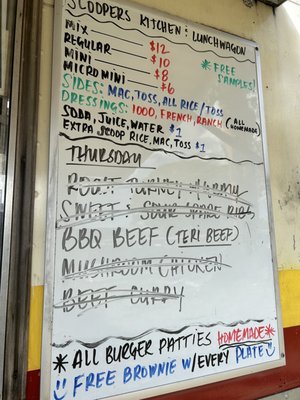 SCOOPERS KITCHEN: LUNCHWAGON
MIX $12
REGULAR $10
MINI $8
MICRO MINI $6
*FREE SAMPLES!
SIDES: MAC, TOSS, ALL RICE/TOSS
DRESSINGS: 1000, FRENCH, RANCH (ALL HOMEMADE)
SODA, JUICE, WATER $1
EXTRA SCOOP RICE, MAC, TOSS $1
THURSDAY
ROAST TURKEY W/GRAVY
SWEET & SOUR SPARE RIBS
BBQ BEEF (TERI BEEF)
MUSHROOM CHICKEN
BEEF CURRY
*ALL BURGER PATTIES HOMEMADE*
FREE BROWNIE W/EVERY PLATE